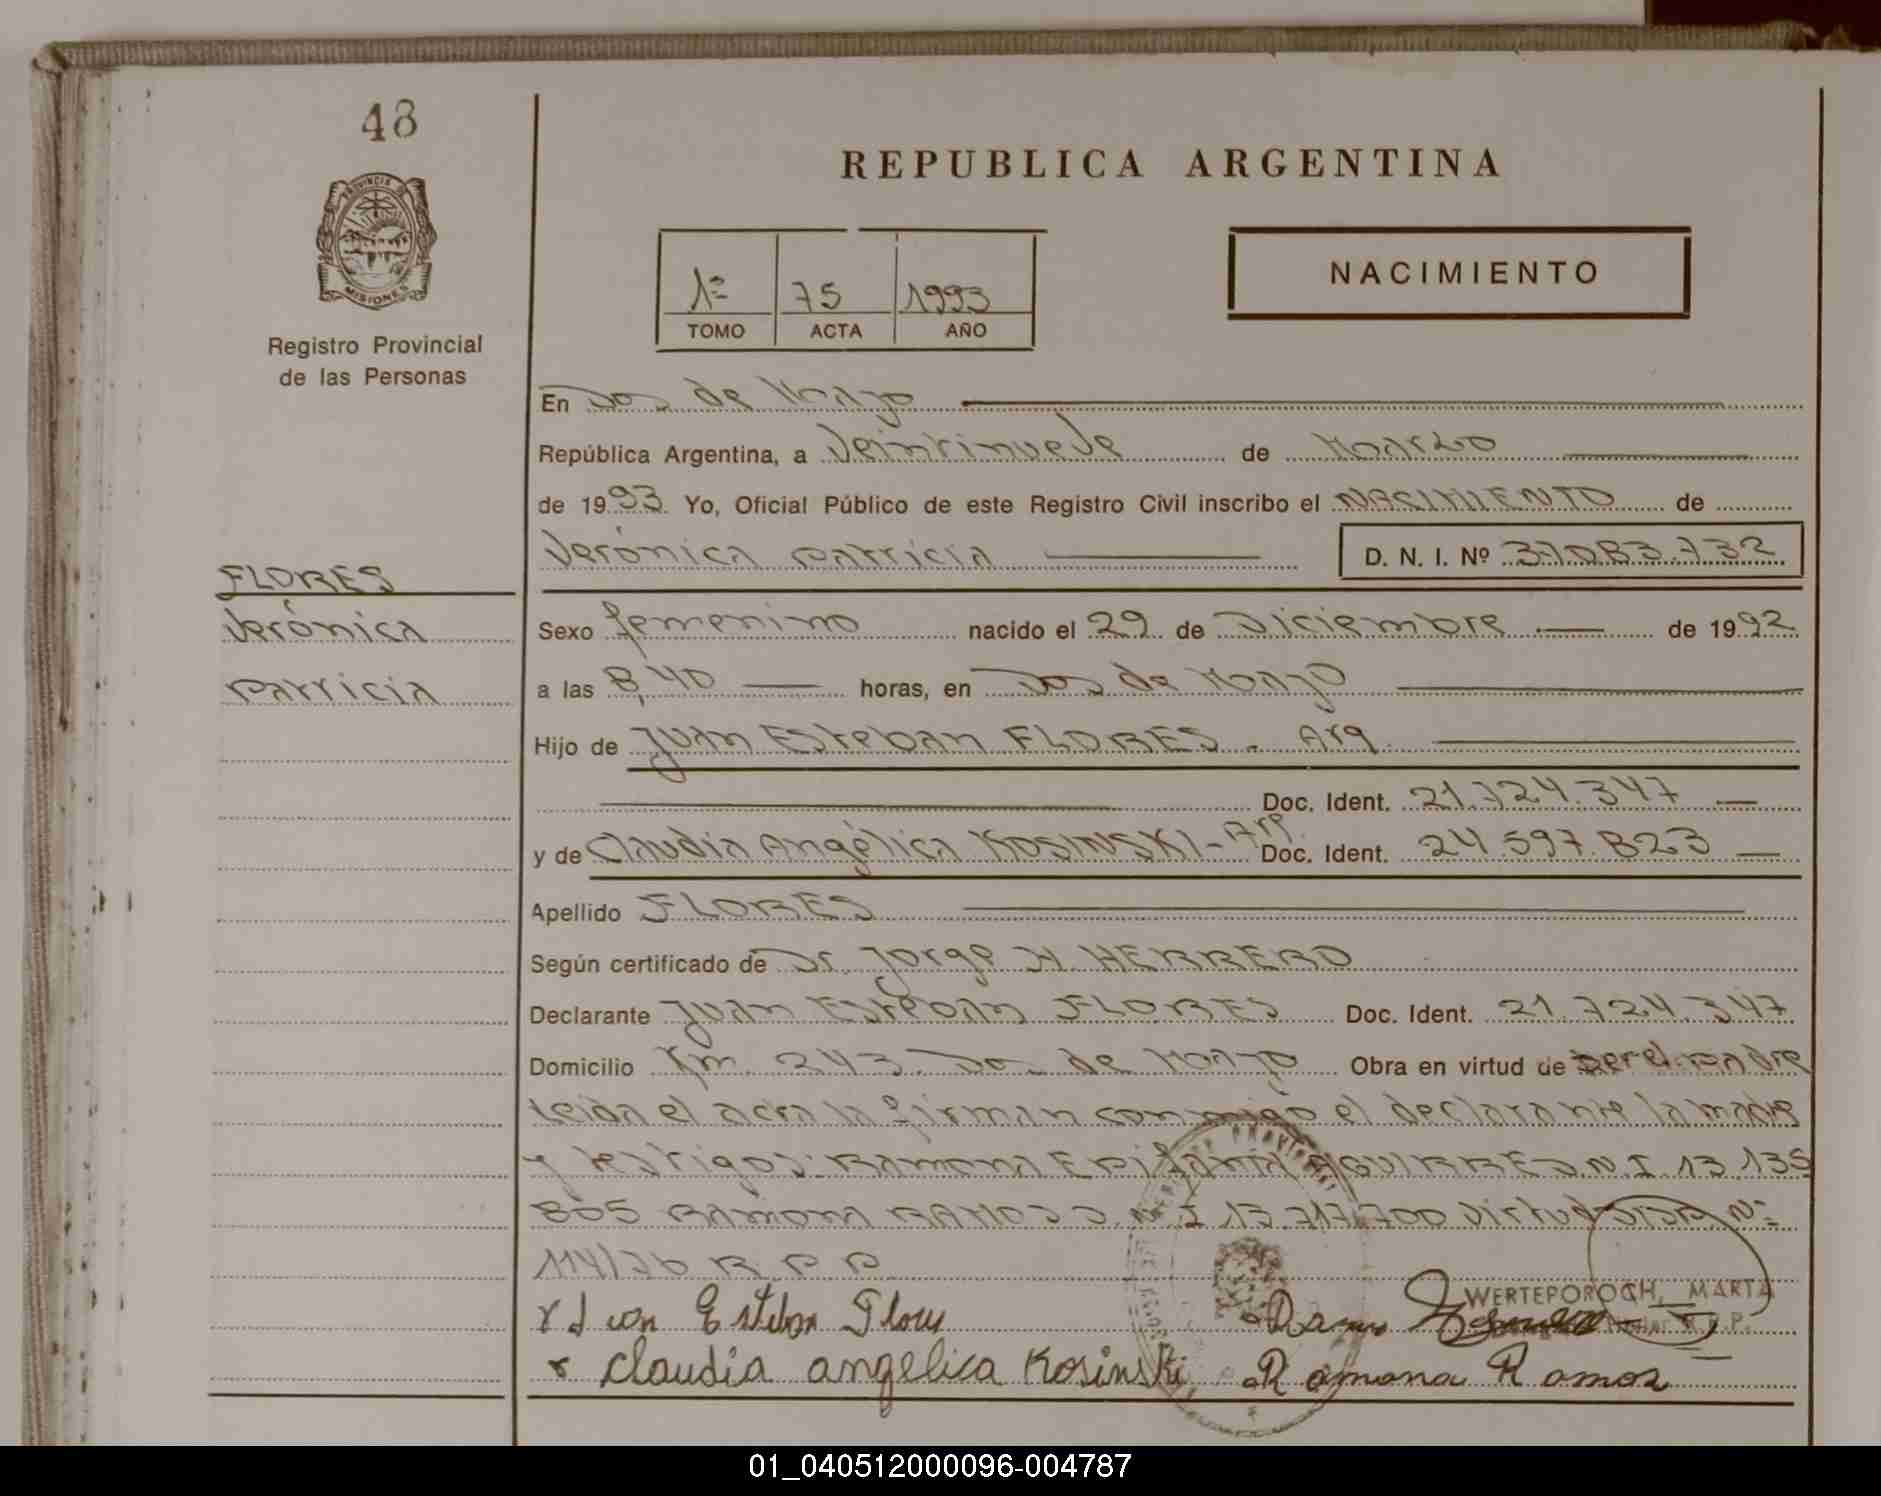 48
REPUBLICA ARGENTINA
PROVINCIA DE
MISIONES
Registro Provincial
de las Personas
1º 75 1993
TOMO ACTA AÑO
NACIMIENTO
En Dos de Mayo
República Argentina, a Veintinueve de Marzo
de 1993 Yo, Oficial Público de este Registro Civil inscribo el NACIMIENTO de
Verónica Patricia D. N. I. Nº 37.083.732
FLORES
Verónica
Patricia
Sexo femenino nacido el 29 de Diciembre de 1992
a las 8,40 horas, en Dos de Mayo
Hijo de Juan Esteban FLORES. Arg.
Doc. Ident. 21.724.347
y de Claudia Angélica KOSINSKI - Arg. Doc. Ident. 24.597.823
Apellido FLORES
Según certificado de Dr. Jorge H. HERRERO
Declarante Juan Esteban FLORES Doc. Ident. 21.724.347
Domicilio Km. 243 Dos de Mayo Obra en virtud de ser el padre
leida el acta la firman conmigo el declarante la madre
y testigos: Ramona Epifania AGUIRRE D.N.I. 13.135
805 Ramona RAMOS D.N.I 13.717.700 virtud Nº
114/76 R P P
WERTEPOROCH, MARTA
Juan Esteban Flores
Claudia angelica Kosinski Ramona Ramos
01_040512000096-004787